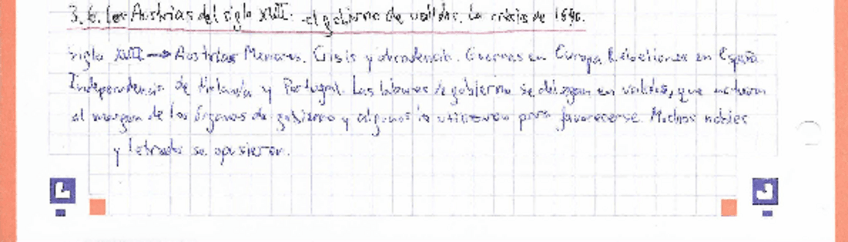 3.6. Los Austrias del siglo XVII. el gobierno de validos. La crisis de 1640.
Siglo XVII → Austrias Menores. Crisis y decadencia. Guerras en Europa Rebeliones en España.
Independencia de Holanda y Portugal. Las labores de gobierno se delegan en validos, que actuaron
al margen de los órganos de gobierno y algunos lo utilizaron para favorecerse. Muchos nobles
y letrados se opusieron.